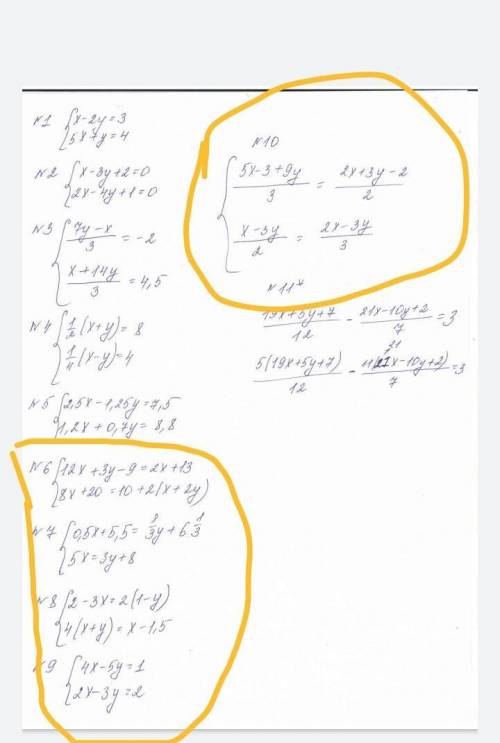 №1 { x-2y=3
5x+y=4
№2 { x-3y+2=0
2x-4y+1=0
№3 { (7y-x)/3 = -2
(x+14y)/3 = 4,5
№4 { 1/2 (x+y)= 8
1/4 (x-y)=4
№5 { 2,5x-1,25y=7,5
1,2x+0,7y= 8,8
№6 { 12x+3y-9=2x+13
8x+20=10+2(x+2y)
№7 { 0,5x+5,5= 1/3 y+6 1/3
5x=3y+8
№8 { 2-3x=2(1-y)
4(x+y)=x-1,5
№9 { 4x-5y=1
2x-3y=2
№10
{ (5x-3+9y)/3 = (2x+3y-2)/2
(x-3y)/2 = (2x-3y)/3
№11*
(19x+5y+7)/12 - (21x-10y+2)/7 =3
5(19x+5y+7)/12 - (x-10y+2)/7 =3